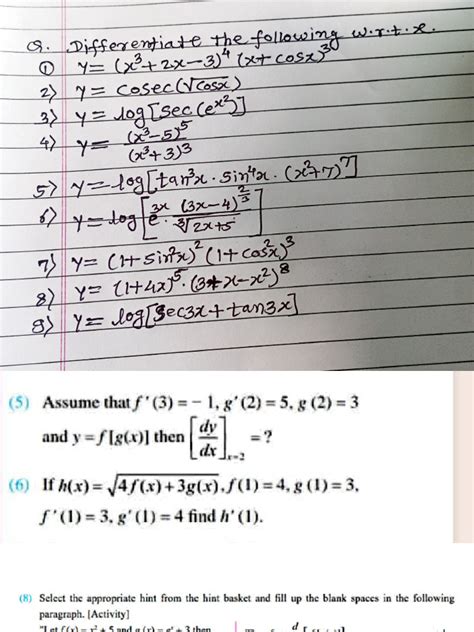 Q. Differentiate the following w.r.t. x.
① y = (x³+2x-3)⁴ (x+cosx)³
2) y = cosec(√cosx)
3) y = log[sec(e^x²)]
4) y = (x³-5)⁵ / (x³+3)³
5) y = log[tan³x · sin⁴x · (x²+7)⁷]
6) y = log[e^3x · (3x-4)^(2/3) / ∛2x+5]
7) y = (1+sin²x)² (1+cos²x)³
8) y = (1+4x)⁵ · (3+x-x²)⁸
9) y = log[sec3x+tan3x]
(5) Assume that f ' (3) = - 1, g' (2) = 5, g (2) = 3
and y = f [g(x)] then [dy/dx]x=2 = ?
(6) If h(x) = √4f (x) + 3g(x), f (1) = 4, g (1) = 3,
f ' (1) = 3, g' (1) = 4 find h' (1).
(8) Select the appropriate hint from the hint basket and fill up the blank spaces in the following
paragraph. [Activity]
"Let f (x) = x² + 5 and g (x) = eˣ + 3 then